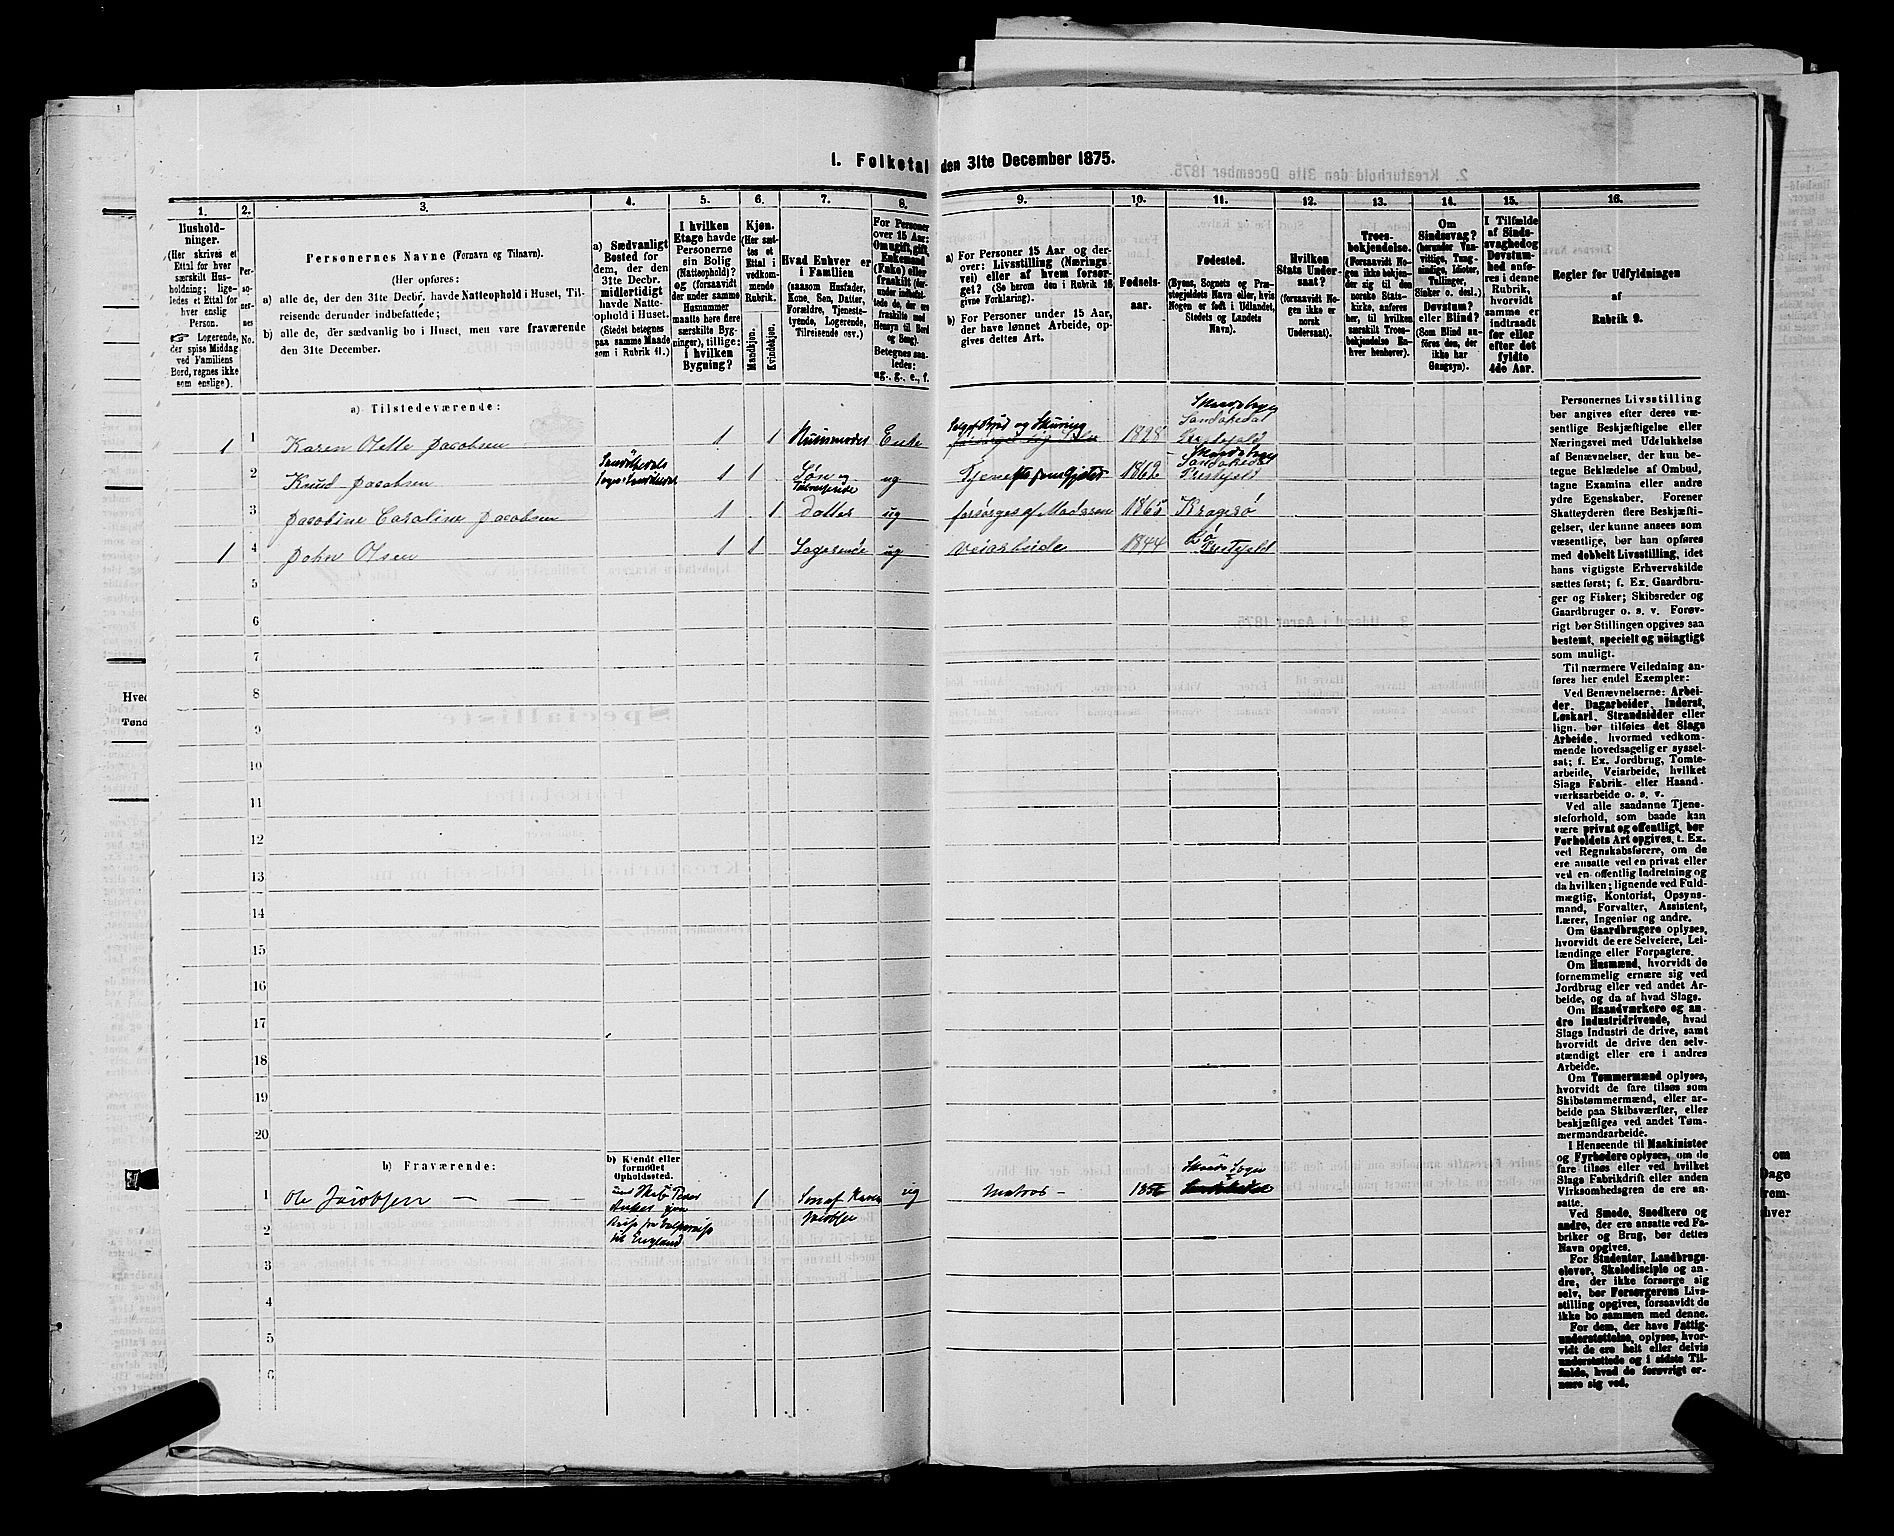 I. Folketal den 31te December 1875.
1. 2. 3. 4. 5. 6. 7. 8. 9. 10. 11. 12. 13. 14. 15. 16.
Hushold-
ninger.
(Her skrives et
Ettal for hver
særskilt Hus-
holdning; lige-
ledes et Ettal for
hver enslig
Person.
☞ Logerende,
der spise Middag
ved Familiens
Bord, regnes ikke
som enslige).
Per-
so-
ner-
nes
No.
Personernes Navne (Fornavn og Tilnavn).
(Her opføres:
a) alle de, der den 31te Decbr. havde Natteophold i Huset, Til-
reisende derunder indbefattede;
b) alle de, der sædvanlig bo i Huset, men vare fraværende
den 31te December.
a) Sædvanligt
Bosted for
dem, der den
31te Decbr.
midlertidigt
havde Natte-
ophold i Huset.
(Stedet betegnes
paa samme Maade
som i Rubrik 11.)
I hvilken
Etage havde
Personerne
sin Bolig
(Natteophold)?
og (forsaavidt
der under samme
Husnummer
maatte høre flere
særskilte Byg-
ninger), tillige:
i hvilken
Bygning?
Kjøn.
(Her sæt-
tes et
Ettal i
vedkom-
mende
Rubrik.
Mandkjøn.
Kvindekjøn.
Hvad Enhver er
i Familien
(saasom Husfader,
Kone, Søn, Datter,
Forældre, Tjeneste-
tyende, Logerende,
Tilreisende osv.)
For Personer
over 15 Aar:
Om ugift, gift,
Enkemand
(Enke) eller
fraskilt (der-
under indbefat-
tede de, der ere
fraskilte med
Hensyn til Bord
og Seng).
Betegnes saa-
ledes:
ug., g., e., f.
a) For Personer 15 Aar og der-
over: Livsstilling (Nærings-
vei) eller af hvem forsør-
get? (Se herom den i Rubrik 16
givne Forklaring).
b) For Personer under 15 Aar,
der have lønnet Arbeide, op-
gives dettes Art.
Fødsels-
aar.
Fødested.
(Byens, Sognets og Præ-
stegjeldets Navn eller, hvis
Nogen er født i Udlandet,
Stedets og Landets
Navn).
Hvilken
Stats Under-
saat?
(forsaavidt No-
gen ikke er
norsk
Undersaat).
Troes-
bekjendelse.
(Forsaavidt No-
gen ikke beken-
der sig til den
norske Stats-
kirke, anføres
her, til hvilken
særskilt Troes-
bekjendelse En-
hver henhører).
Om
Sindssvag?
(herunder Van-
vittige, Tung-
sindige, Idioter,
Tullinger,
Sinker o. desl.)
Døvstum?
eller Blind?
(Som Blind an-
føres den, der
ikke har
Gangsyn).
I Tilfælde
af Sinds-
svaghed og
Døvstum-
hed anfø-
res i denne
Rubrik,
hvorvidt
samme er
indtraadt
før eller
efter det
fyldte
4de Aar.
Regler før Udfyldningen
af
Rubrik 9.
a) Tilstedeværende:
1 1 Karen Olette Jacobsen 1 1 Husmoder Enke Sælg af Brød og Skuring 1828 Skaadebugs Sandøkedal Prestejeld
2 Knud Jacobsen 1 1 Søn og Tilreisende ug 1862 Skaadebugs Sandøkedal Prestejeld
3 Jacobine Caroline Jacobsen 1 1 Datter ug forsørges af Moderen 1865 Kragerø
1 4 John Olsen 1 1 Logerende ug Veiarbeide 1844 Bø Prestejeld
5
6
7
8
9
10
11
12
13
14
15
16
17
18
19
20
b) Fraværende:
b) Kjendt eller
formodet
Opholdssted.
1 Ole Jacobsen — — 1 Søn af Karen Jacobsen ug Matros –
til England
2
3
4
5
6
Personernes Livsstilling
bør angives efter deres væ-
sentlige Beskjæftigelse eller
Næringsvei med Udelukkelse
af Benævnelser, der kun be-
tegne Beklædelse af Ombud,
tagne Examina eller andre
ydre Egenskaber. Forener
Skatteyderen flere Beskjæfti-
gelser, der kunne ansees som
væsentlige, bør han opføres
med dobbelt Livsstilling, idet
hans vigtigste Erhvervskilde
sættes først; f. Ex. Gaardbru-
ger og Fisker; Skibsreder og
Gaardbruger o. s. v. Forøv-
rigt bør Stillingen opgives saa
bestemt, specielt og nöiagtigt
som muligt.
Til nærmere Veiledning an-
føres her endel Exempler:
Ved Benævnelserne: Arbei-
der, Dagarbeider, Inderst,
Løskarl, Strandsidder eller
lign. bør tilføies det Slags
Arbeide, hvormed vedkom-
mende hovedsagelig er syssel-
sat; f. Ex. Jordbrug, Tomte-
arbeide, Veiarbeide, hvilket
Slags Fabrik- eller Haand-
værksarbeide o. s. v.
Ved alle saadanne Tjene-
steforhold, som baade kan
være privat og offentligt, bør
Forholdets Art opgives, t. Ex.
ved Regnskabsførere, om de
ere ansatte ved en privat eller
ved en offentlig Indretning og
da hvilken; lignende ved Fuld-
mægtig, Kontorist, Opsyns-
mand, Forvalter, Assistent,
Lærer, Ingeniør og andre.
Om Gaardbrugere oplyses,
hvorvidt de ere Selveiere, Lei-
lændinge eller Forpagtere.
Om Husmænd, hvorvidt de
fornemmelig ernære sig ved
Jordbrug eller ved andet Ar-
beide, og da af hvad Slags.
Om Haandværkere og an-
dre industridrivende, hvad
Slags Industri de drive, samt
hvorvidt de drive den selv-
stændigt eller ere i andres
Arbeide.
Om Tømmermænd oplyses,
hvorvidt de fare tilsøs som
Skibstømmermænd, eller ar-
beide paa Skibsværfter, eller
beskjæftiges ved andet Tøm-
mermandsarbeide.
I Henseende til Maskinister
og Fyrbødere oplyses, om de
fare tilsøs eller ved hvilket
Slags Fabrikdrift eller anden
Virksomhedsgren de ere an-
satte.
Ved Smede, Snedkere og
andre, der ere ansatte ved Fa-
briker og Brug, bør dettes
Navn opgives.
For Studenter, Landbrugs-
elever, Skoledisciple og an-
dre, der ikke forsørge sig
selv, bør Forsørgerens Livs-
stilling opgives, forsaavidt de
ikke bo sammen med denne.
For dem, der have Fattig-
understøttelse, oplyses, hvor-
vidt de ere helt eller delvis
understøttede og i sidste Til-
fælde, hvad de forøvrigt er-
nære sig ved.
Tønd
om
Dage
hver